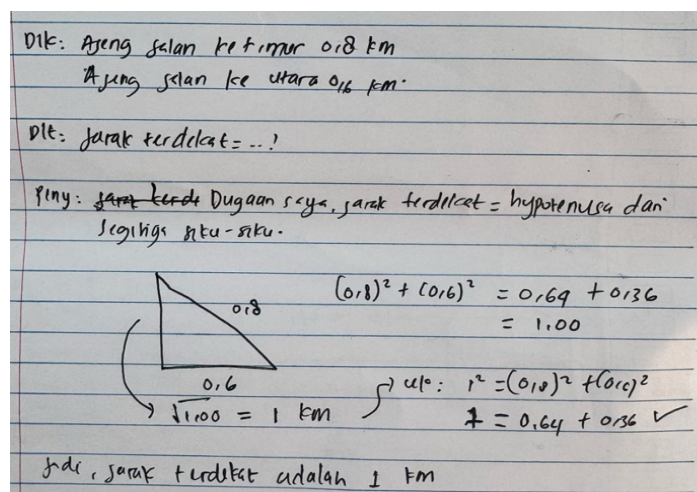 Dik: Ajeng jalan ke timur 0,8 km
Ajeng jalan ke utara 0,6 km.
Dit: Jarak terdekat = ..?
Peny: Dugaan saya, jarak terdekat = hypotenusa dari
segitiga siku-siku.
(0,8)² + (0,6)² = 0,64 + 0,36
= 1.00
0,8
0,6
√1.00 = 1 km
1² = (0,8)² + (0,6)²
1 = 0,64 + 0,36 ✓
Jadi, jarak terdekat adalah 1 km